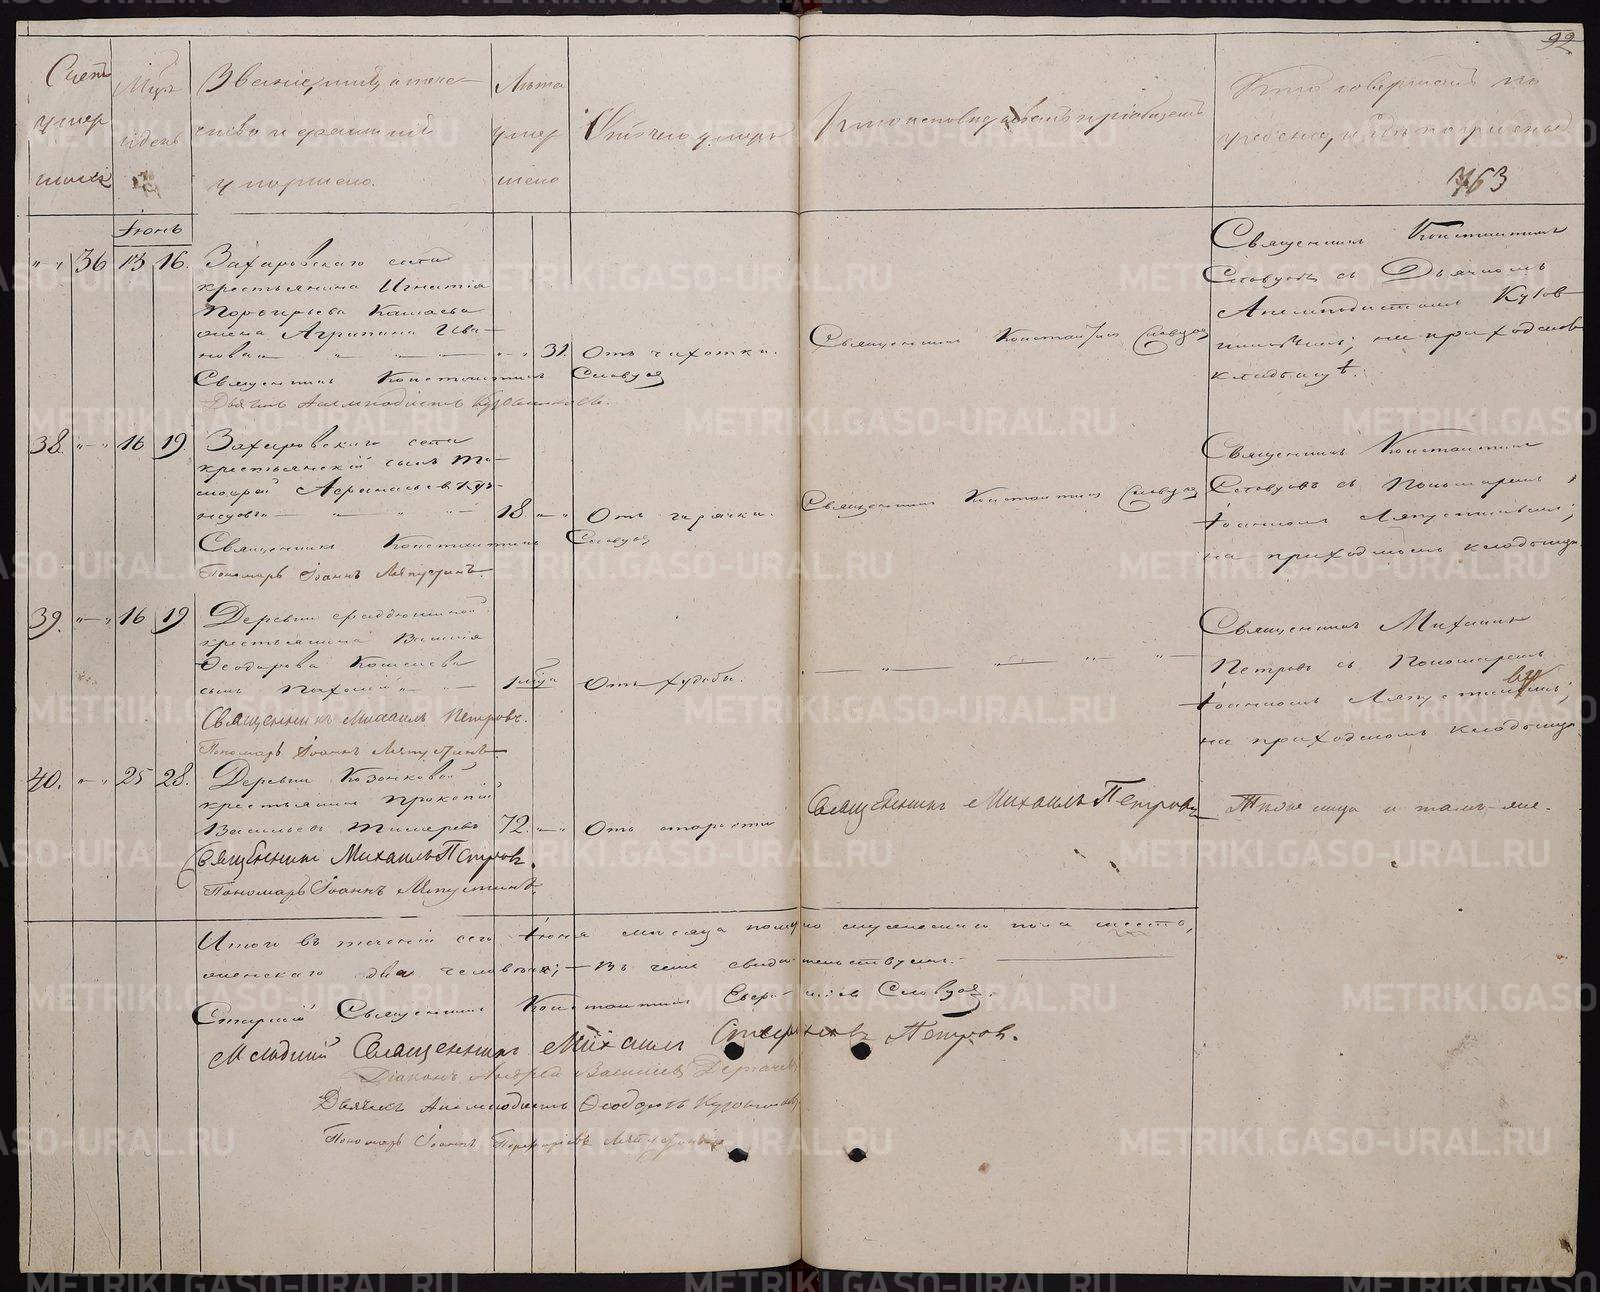 92
Счетъ умер шихъ
Мцъ и день
Званіе, имя, отече
ство и фамилія
умершаго.
Лѣта умер шаго
Отъ чего умеръ
Кто исповѣдывалъ и пріобщалъ
Кто совершалъ по
гребеніе, и гдѣ погребены
763
Іюнь
„ - „ 36 13 16.
Захаровскаго села
крестьянина Игнатія
Порфирьева Кашаева
жена Агрипина Ива-
нова „ „ 31. Отъ чахотки.
Священникъ Константинъ Словцовъ
Дьячекъ Анемподистъ Кузовниковъ.
Священникъ Константинъ Словцовъ
Священникъ Константинъ
Словцовъ съ Дьячкомъ
Анемподистомъ Кузов
никовымъ; на приходском
кладбищѣ.
38. „ - „ 16 19.
Захаровскаго села
крестьянскій сынъ Ти-
мофей Афанасьевъ Куз-
нецовъ 18. „ - „ Отъ горячки.
Священникъ Константинъ Словцовъ
Пономарь Іоаннъ Ляпустинъ.
Священникъ Константинъ Словцовъ
Священникъ Константинъ
Словцовъ съ Пономаремъ
Іоанномъ Ляпустинымъ;
на приходскомъ кладбищѣ
39. „ - „ 16 19.
Деревни
крестьянина Василія
Ѳеодорова Кошелева
сынъ Пахомій 1 мѣца Отъ худобы.
Священникъ Михаилъ Петровъ.
Пономарь Іоаннъ Ляпустинъ
Священникъ Михаилъ
Петровъ съ Пономаремъ
Іоанномъ Ляпустинымъ;
на приходскомъ кладбищѣ
40. „ - „ 25 28.
Деревни Казонковой
крестьянинъ Прокопій
Васильевъ 72. „ - „ Отъ старости
Священникъ Михаилъ Петровъ.
Пономарь Іоаннъ Ляпустинъ.
Священникъ Михаилъ Петровъ
Тѣже лица и тамъ-же.
Итого въ теченіи сего Іюня мѣсяца померло мужескаго пола шесть,
женскаго два человѣка; - въ чемъ свидѣтельствуемъ.
Старшій Священникъ Константинъ Словцовъ.
Младшій Священникъ Михаилъ Стефановъ Петровъ.
Діаконъ Андрей Василіевъ Дергачевъ
Дьячекъ Анемподистъ Ѳеодоровъ Кузовниковъ
Пономарь Іоаннъ Порфирьевъ Ляпустинъ
METRIKI.GASO-URAL.RU